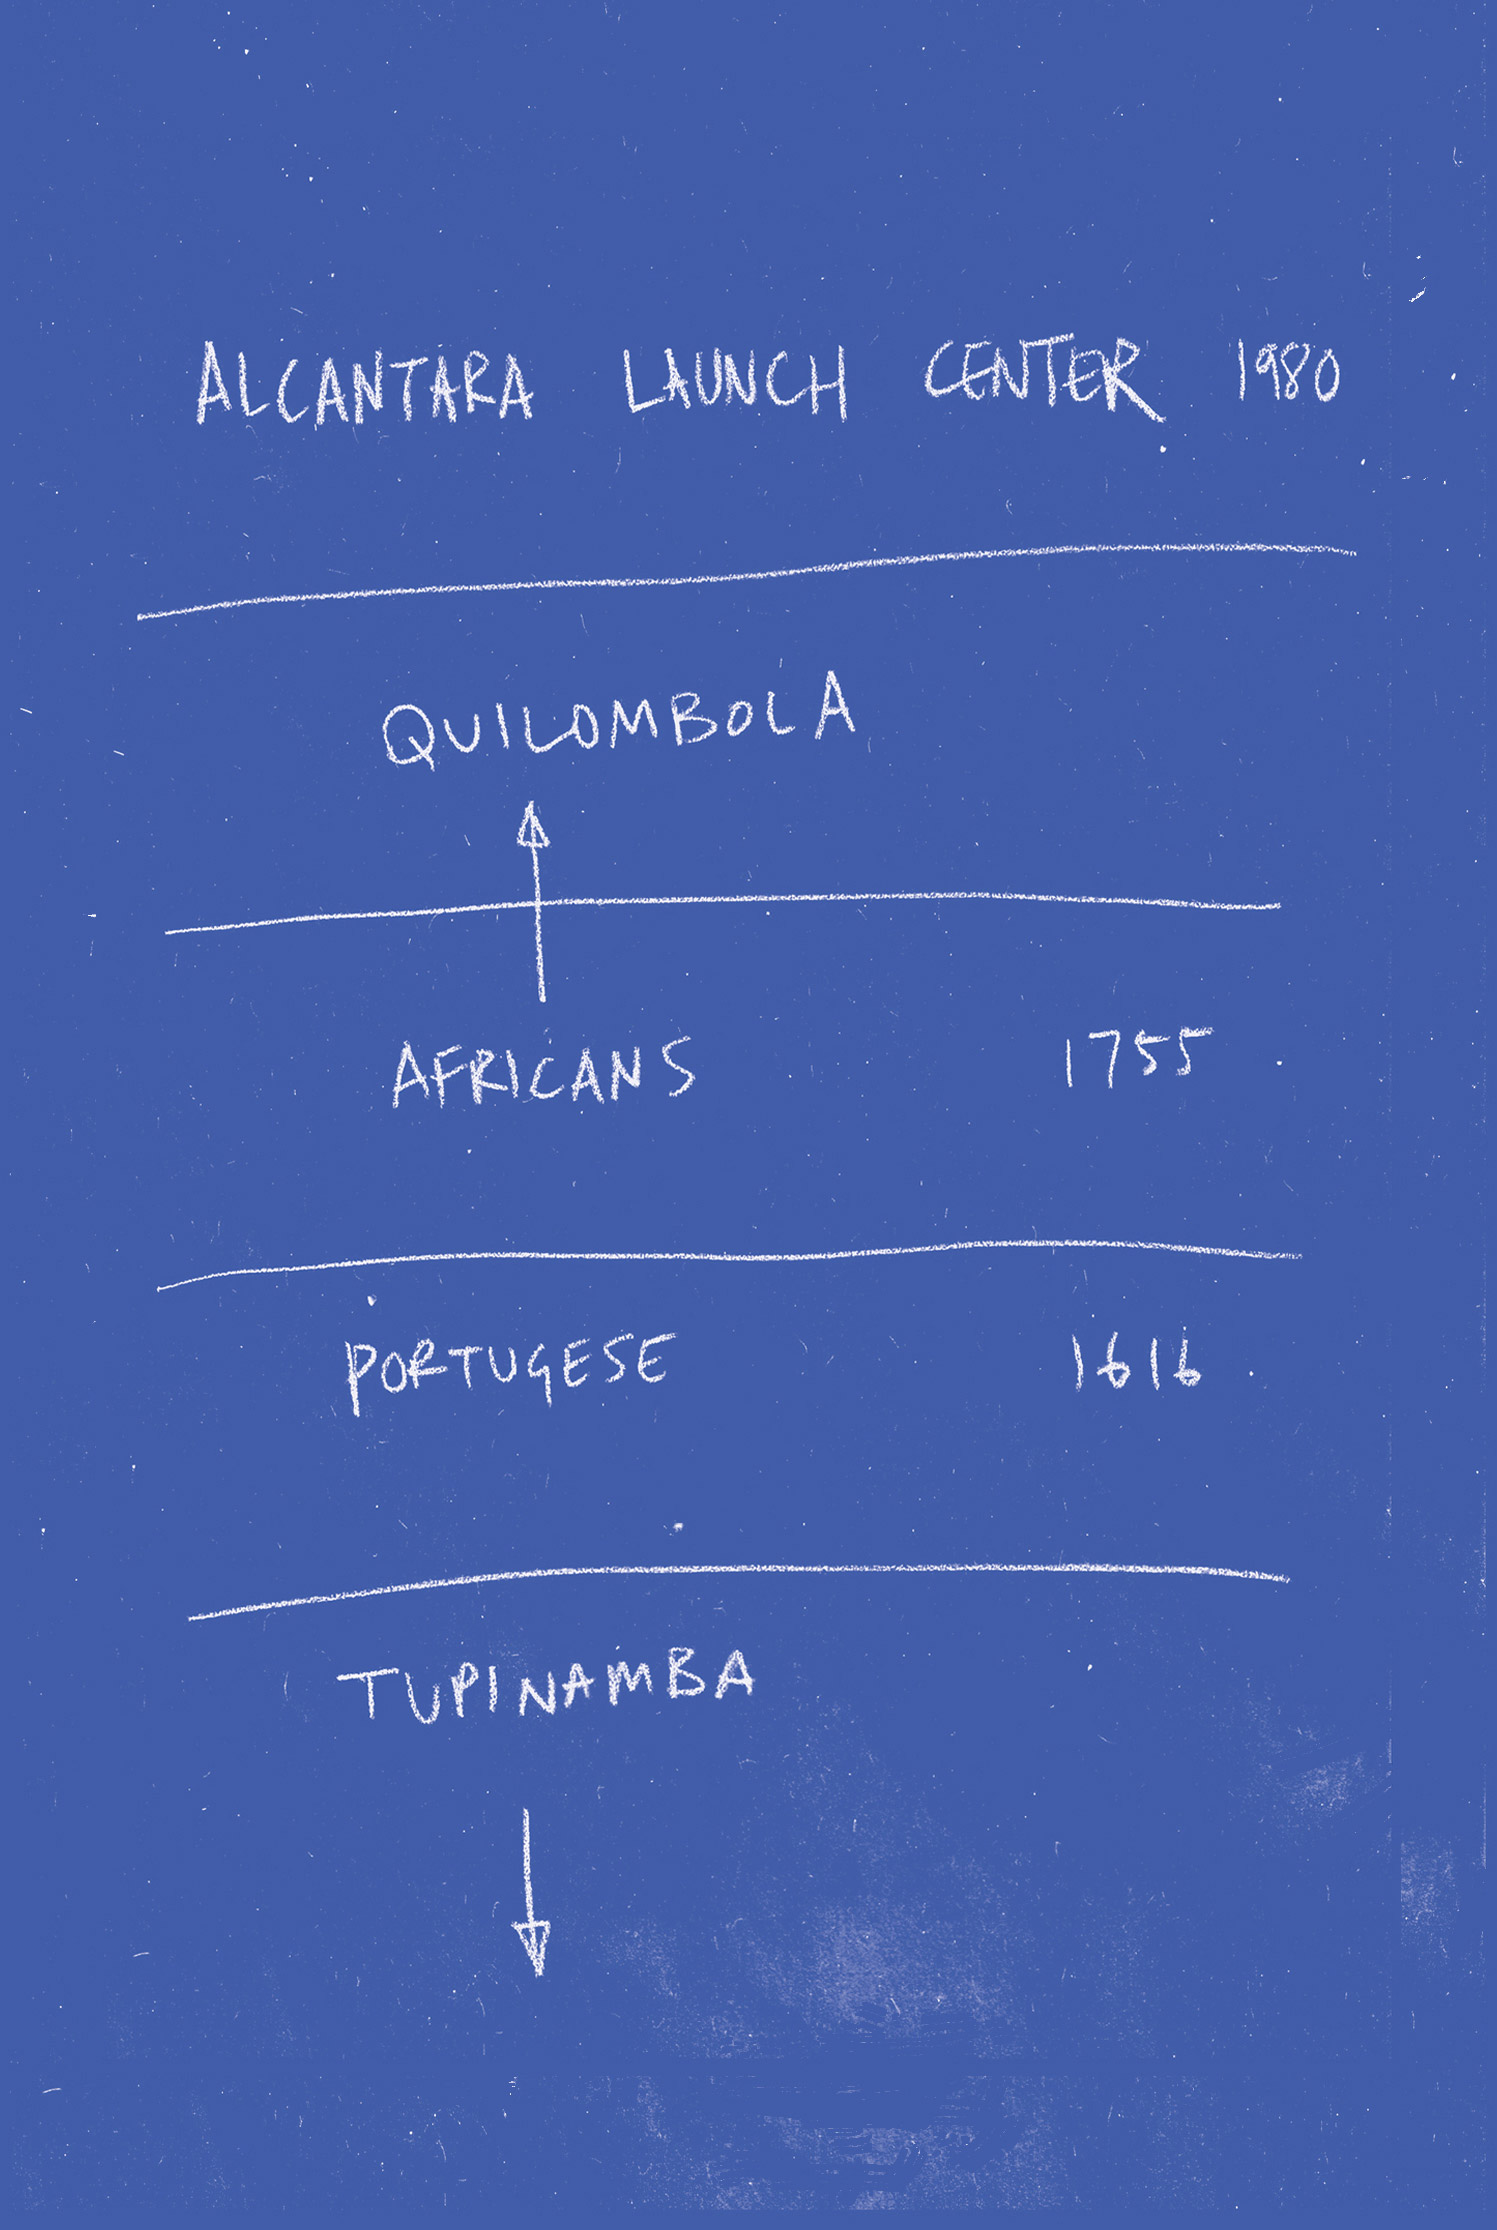 ALCANTARA LAUNCH CENTER 1980
QUILOMBOLA
AFRICANS 1755
PORTUGESE 1616
TUPINAMBA